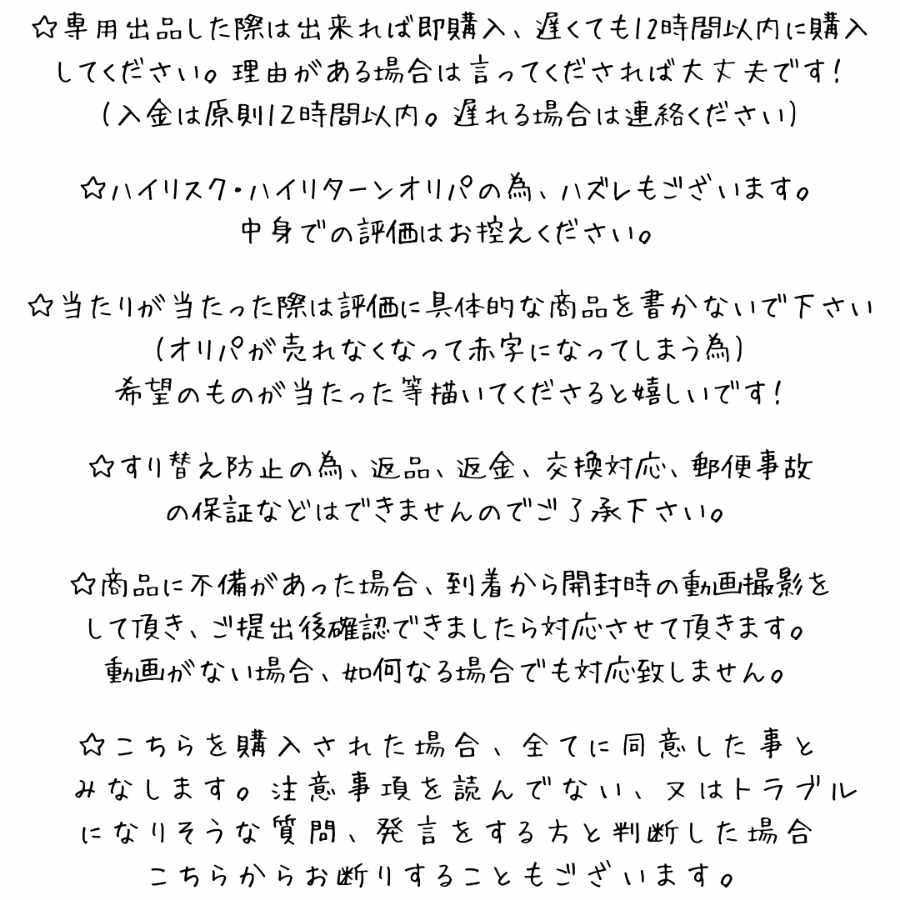 ☆専用出品した際は出来れば即購入、遅くても12時間以内に購入
してください。理由がある場合は言ってくだされば大丈夫です!
(入金は原則12時間以内。遅れる場合は連絡ください)
☆ハイリスク・ハイリターンオリパの為、ハズレもございます。
中身での評価はお控えください。
☆当たりが当たった際は評価に具体的な商品を書かないで下さい
(オリパが売れなくなって赤字になってしまう為)
希望のものが当たった等描いてくださると嬉しいです!
☆すり替え防止の為、返品、返金、交換対応、郵便事故
の保証などはできませんのでご了承下さい。
☆商品に不備があった場合、到着から開封時の動画撮影を
して頂き、ご提出後確認できましたら対応させて頂きます。
動画がない場合、如何なる場合でも対応致しません。
☆こちらを購入された場合、全てに同意した事と
みなします。注意事項を読んでない、又はトラブル
になりそうな質問、発言をする方と判断した場合
こちらからお断りすることもございます。